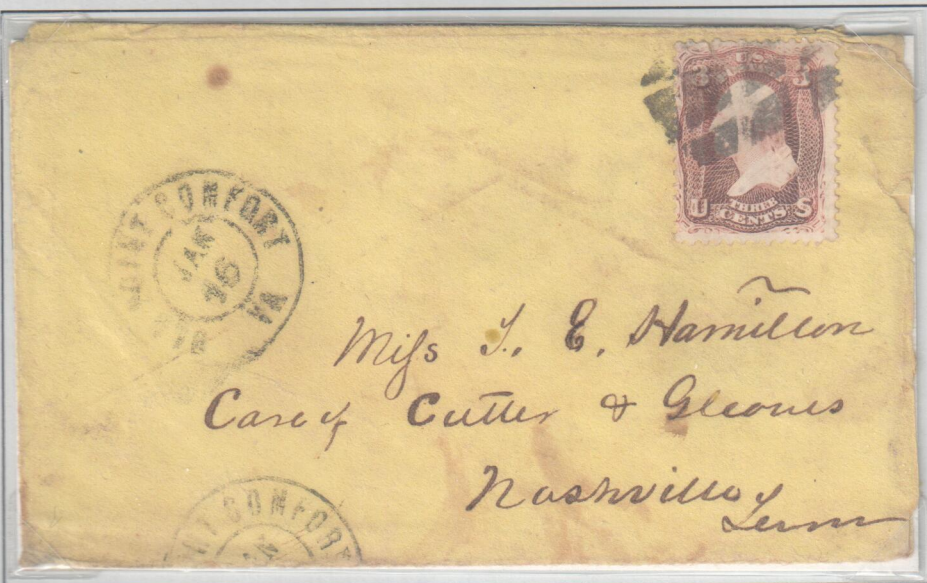 3 U.S. 3
THREE
U CENTS S
OINT COMFORT VA
JAN
16
Miſs S. E. Hamilton
Care of Cutter & Gleoues
Nashville
Tenn
INT COMFORT